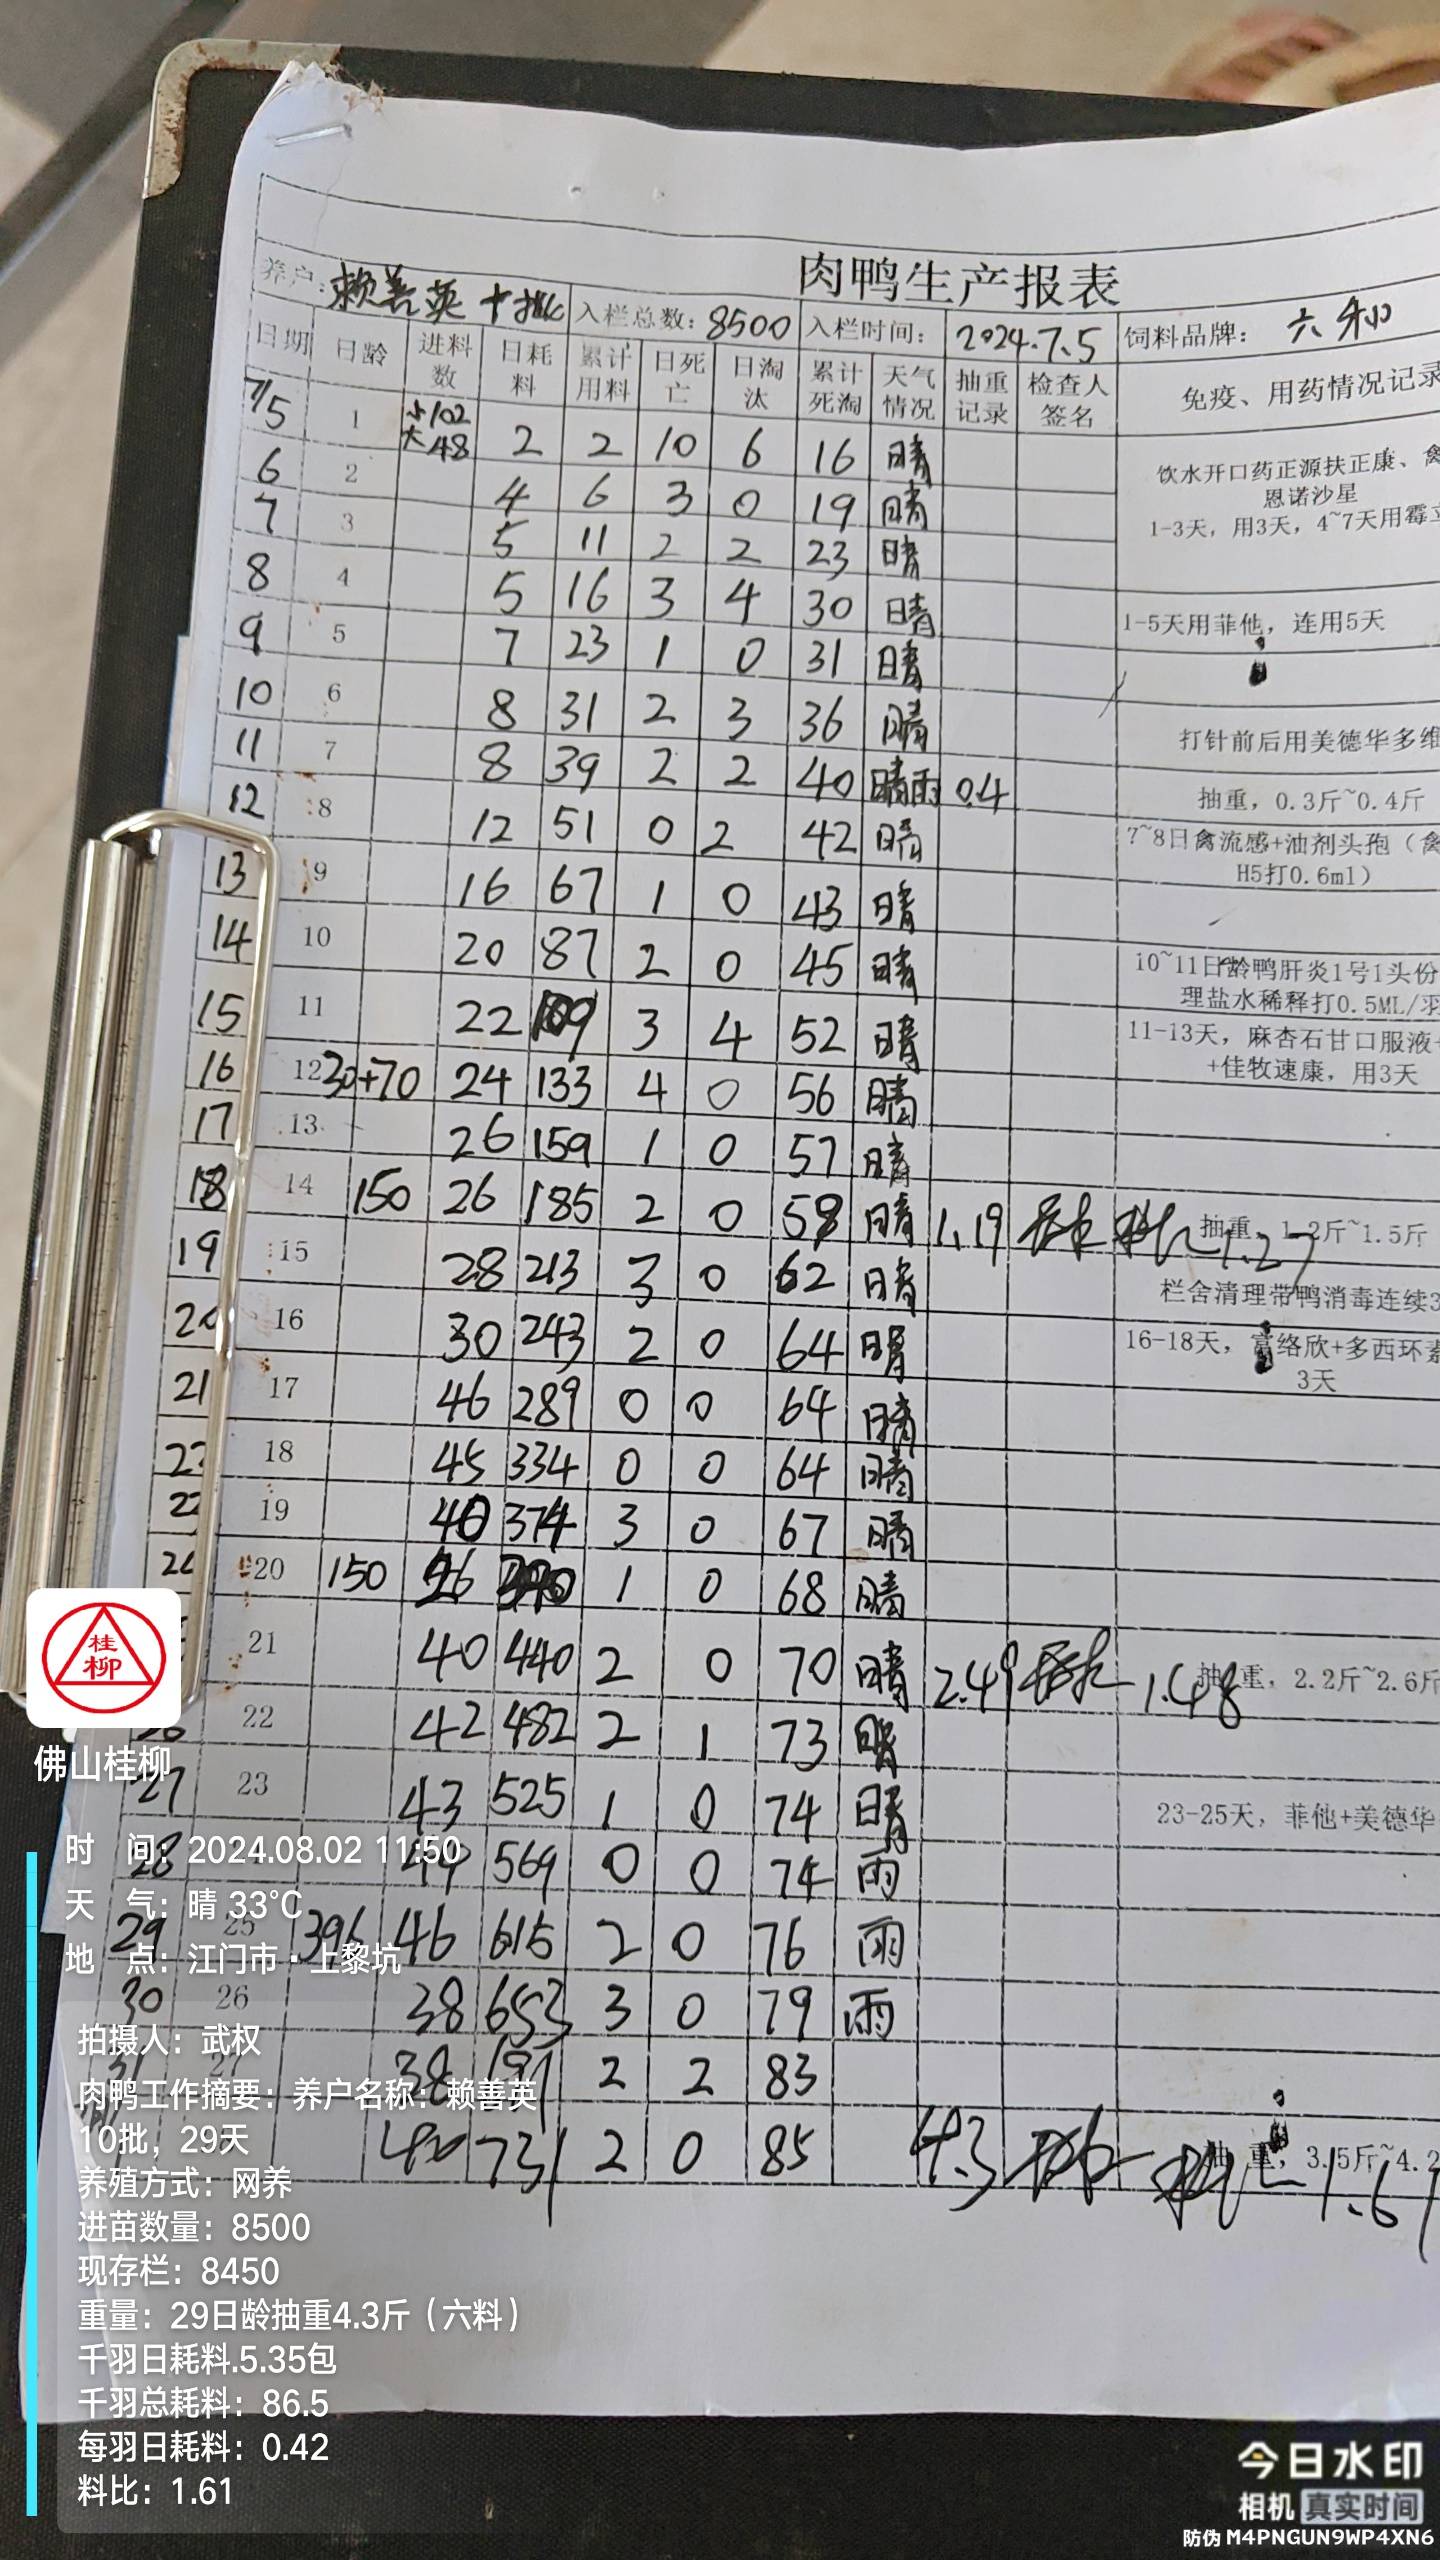 肉鸭生产报表
养户：赖善英 十批 入栏总数：8500 入栏时间：2024.7.5 饲料品牌：六和
日期 日龄 进料数 日耗料 累计用料 日死亡 日淘汰 累计死淘 天气情况 抽重记录 检查人签名 免疫、用药情况记录
7/5 1 小102 大48 2 2 10 6 16 晴
饮水开口药正源扶正康、禽
恩诺沙星
1-3天，用3天，4~7天用霉立
6 2 4 6 3 0 19 晴
7 3 5 11 2 2 23 晴
8 4 5 16 3 4 30 晴 1-5天用菲他，连用5天
9 5 7 23 1 0 31 晴
10 6 8 31 2 3 36 晴 打针前后用美德华多维
11 7 8 39 2 2 40 晴雨 0.4 抽重，0.3斤~0.4斤
12 8 12 51 0 2 42 晴 7~8日禽流感+油剂头孢（禽
H5打0.6ml）
13 9 16 67 1 0 43 晴
14 10 20 87 2 0 45 晴 10~11日龄鸭肝炎1号1头份
理盐水稀释打0.5ML/羽
15 11 22 109 3 4 52 晴 11-13天，麻杏石甘口服液+
+佳牧速康，用3天
16 12 30+70 24 133 4 0 56 晴
17 13 26 159 1 0 57 晴
18 14 150 26 185 2 0 59 晴 1.19 抽重，1.2斤~1.5斤 1.27
19 15 28 213 3 0 62 晴 栏舍清理带鸭消毒连续3
20 16 30 243 2 0 64 晴 16-18天，富络欣+多西环素
3天
21 17 46 289 0 0 64 晴
22 18 45 334 0 0 64 晴
19 40 374 3 0 67 晴
20 150 26 1 0 68 晴
21 40 440 2 0 70 晴 2.49 1.48 抽重，2.2斤~2.6斤
26 22 42 482 2 1 73 晴
27 23 43 525 1 0 74 晴 23-25天，菲他+美德华
28 44 569 0 0 74 雨
29 25 396 46 615 2 0 76 雨
30 26 38 653 3 0 79 雨
31 27 38 691 2 2 83
40 731 2 0 85 4.3 抽重，3.5斤~4.2 料比 1.61
桂柳
佛山桂柳
时 间：2024.08.02 11:50
天 气：晴 33℃
地 点：江门市·上黎坑
拍摄人：武权
肉鸭工作摘要：养户名称：赖善英
10批，29天
养殖方式：网养
进苗数量：8500
现存栏：8450
重量：29日龄抽重4.3斤（六料）
千羽日耗料.5.35包
千羽总耗料：86.5
每羽日耗料：0.42
料比：1.61
今日水印
相机 真实时间
防伪 M4PNGUN9WP4XN6